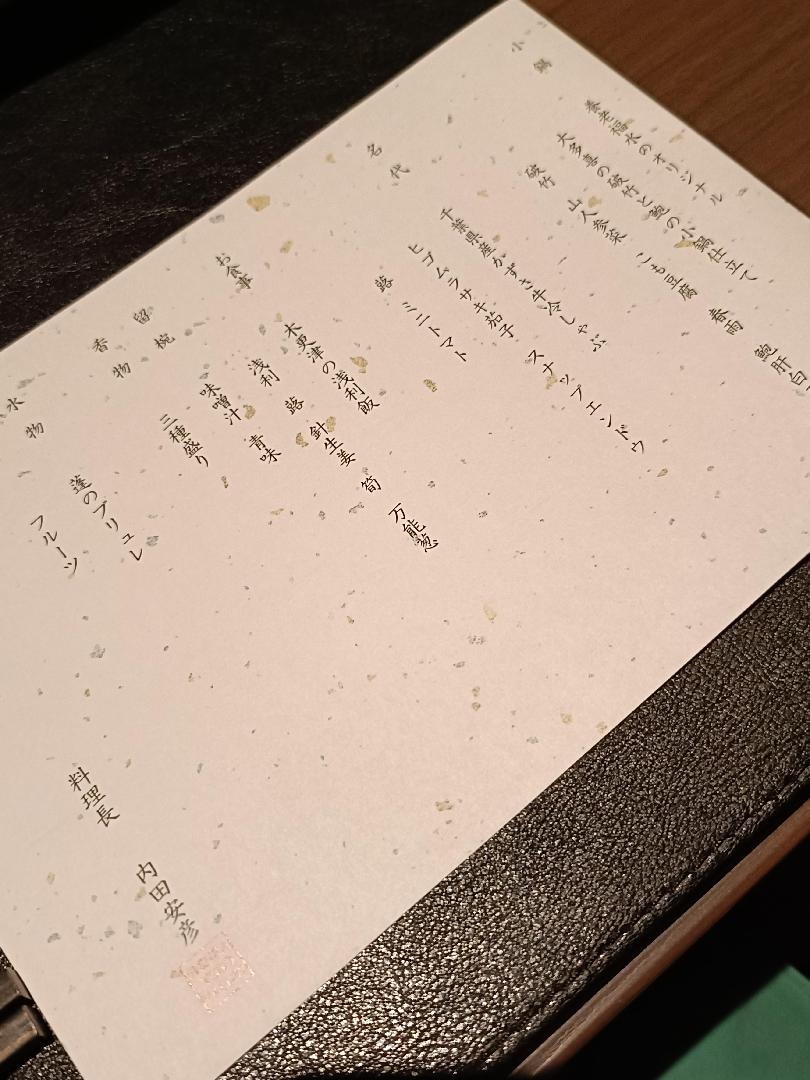 小鍋
養老福水のオリジナル
大多喜の破竹と鮑の小鍋仕立て
破竹 山人参菜 こも豆腐 春雨 鮑肝白
名代
千葉県産かずさ牛冷しゃぶ
ヒゴムラサキ茄子 スナップエンドウ
蕗 ミニトマト
お食事
木更津の浅利飯
浅利 蕗 針生姜 筍 万能葱
留椀 味噌汁 青味
香物 三種盛り
水物 蓬のブリュレ
フルーツ
料理長 内田安彦